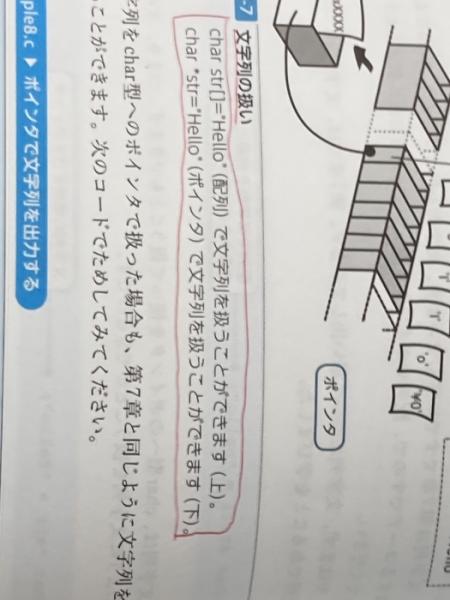 0xXXXX
'l'
'l'
'o'
'¥0'
ポインタ
-7 文字列の扱い
char str[]="Hello"(配列)で文字列を扱うことができます(上)。
char *str="Hello"(ポインタ)で文字列を扱うことができます(下)。
字列をchar型へのポインタで扱った場合も、第7章と同じように文字列を
ことができます。次のコードでためしてみてください。
ple8.c ▶ ポインタで文字列を出力する